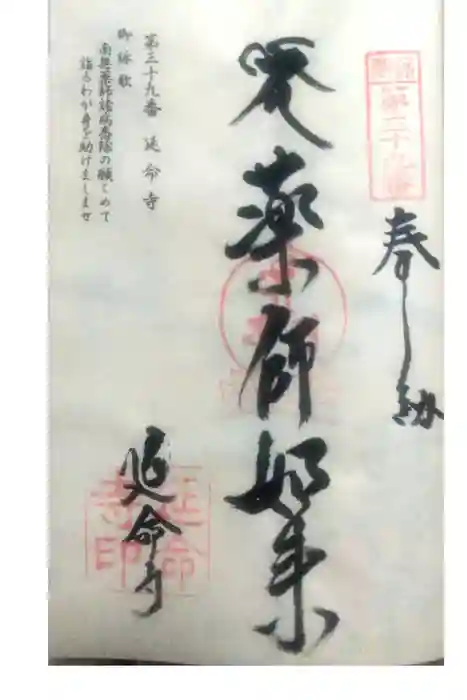 第三十九番
奉納
薬師如来
延命寺
延命寺印
第三十九番 延命寺
御詠歌
南無薬師諸病悉除の願こめて
詣るわが身を助けましませ